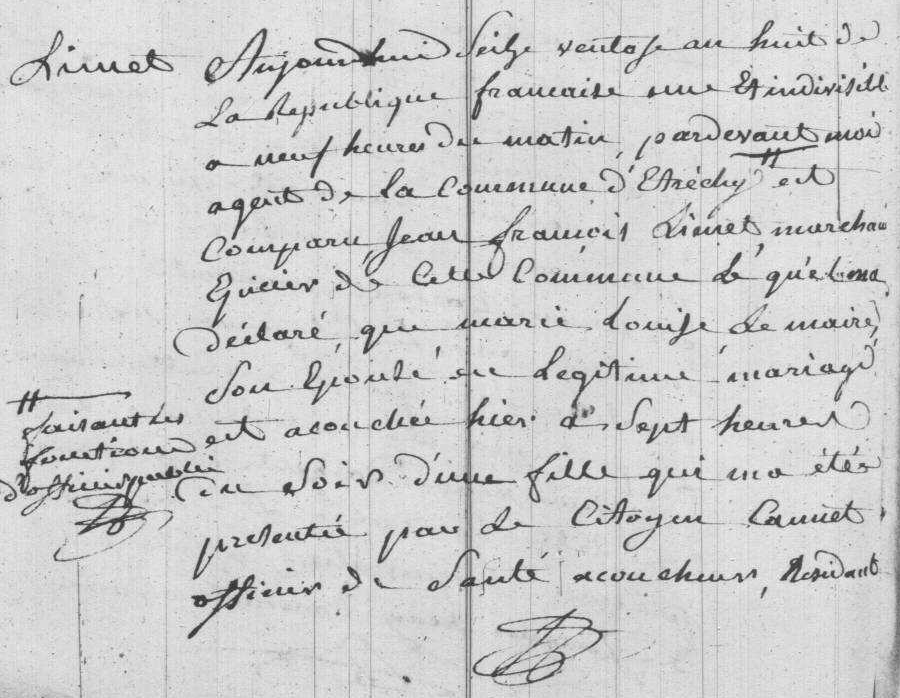 Limet
Aujourdhui Seize ventose an huit de
La Republique francaise une Et indivisible
a neuf heures du matin, pardevant moi
agent de la Commune d'Etréchy # est
Comparu Jean françois Limet marchand
Epicier de Cette Commune Lequel ma
déclaré, que marie Louise Lemaire,
Son Epouse en Legitime mariage
est acouchée hier a Sept heures
du Soir d'une fille qui ma étée
presentée par Le Citoyen Cannet
officier de Santé acoucheur, Residant
# faisant les
fonctions
d'officier public